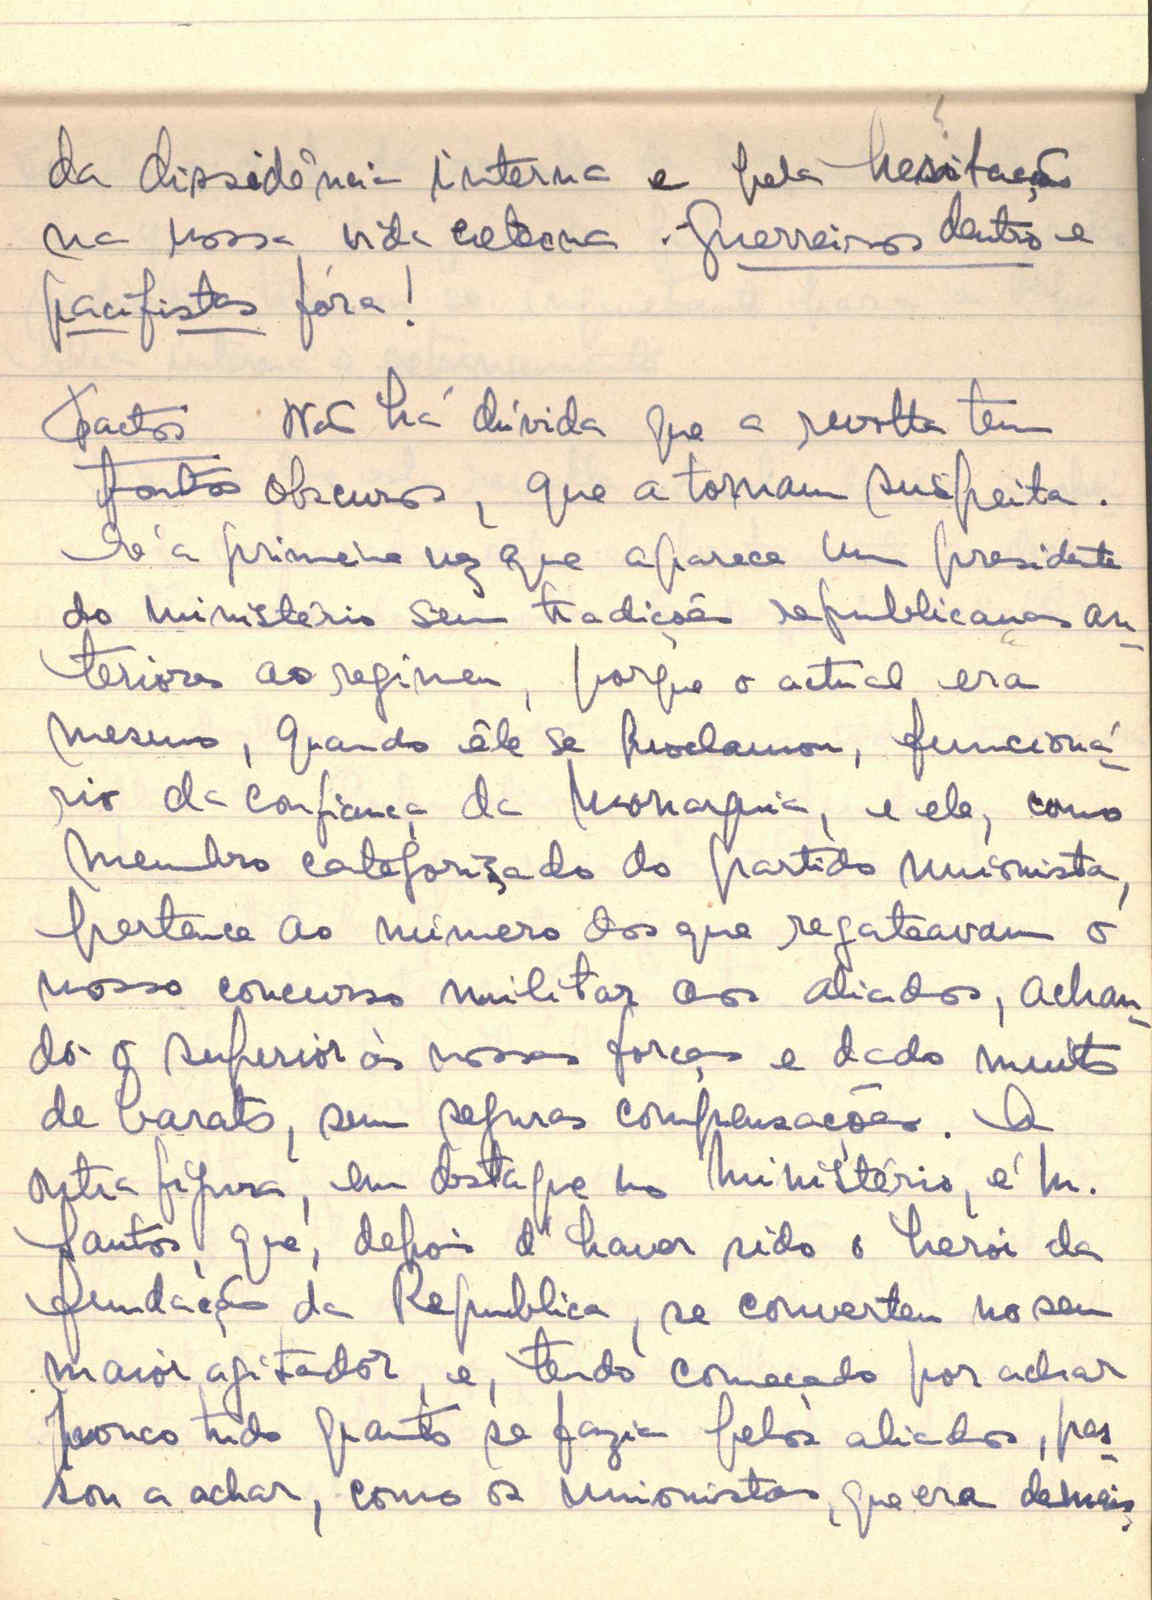 da dissidência interna e pela hesitação
na nossa vida externa. Guerreiros dentro e
pacifistas fóra!
Factos Não há dúvida que a revolta tem
pontos obscuros, que a tornam suspeita.
É a primeira vez que aparece um presidente
do ministério sem tradições republicanas an-
teriores ao regimen, porque o actual era
mesmo, quando êle se proclamou, funcioná-
rio da confiança da Monarquia, e ele, como
membro categorizado do partido unionista,
pertence ao número dos que regateavam o
nosso concurso militar aos aliados, achan-
do-o superior ás nossas forças e dado muito
de barato, sem seguras compensações. A
outra figura, em destaque no Ministério, é M.
Santos, que, depois d'haver sido o heroi da
fundação da Republica, se converteu no seu
maior agitador, e, tendo começado por achar
pouco tudo quanto se fazia pelos aliados, pas-
sou a achar, como os unionistas, que era demais,